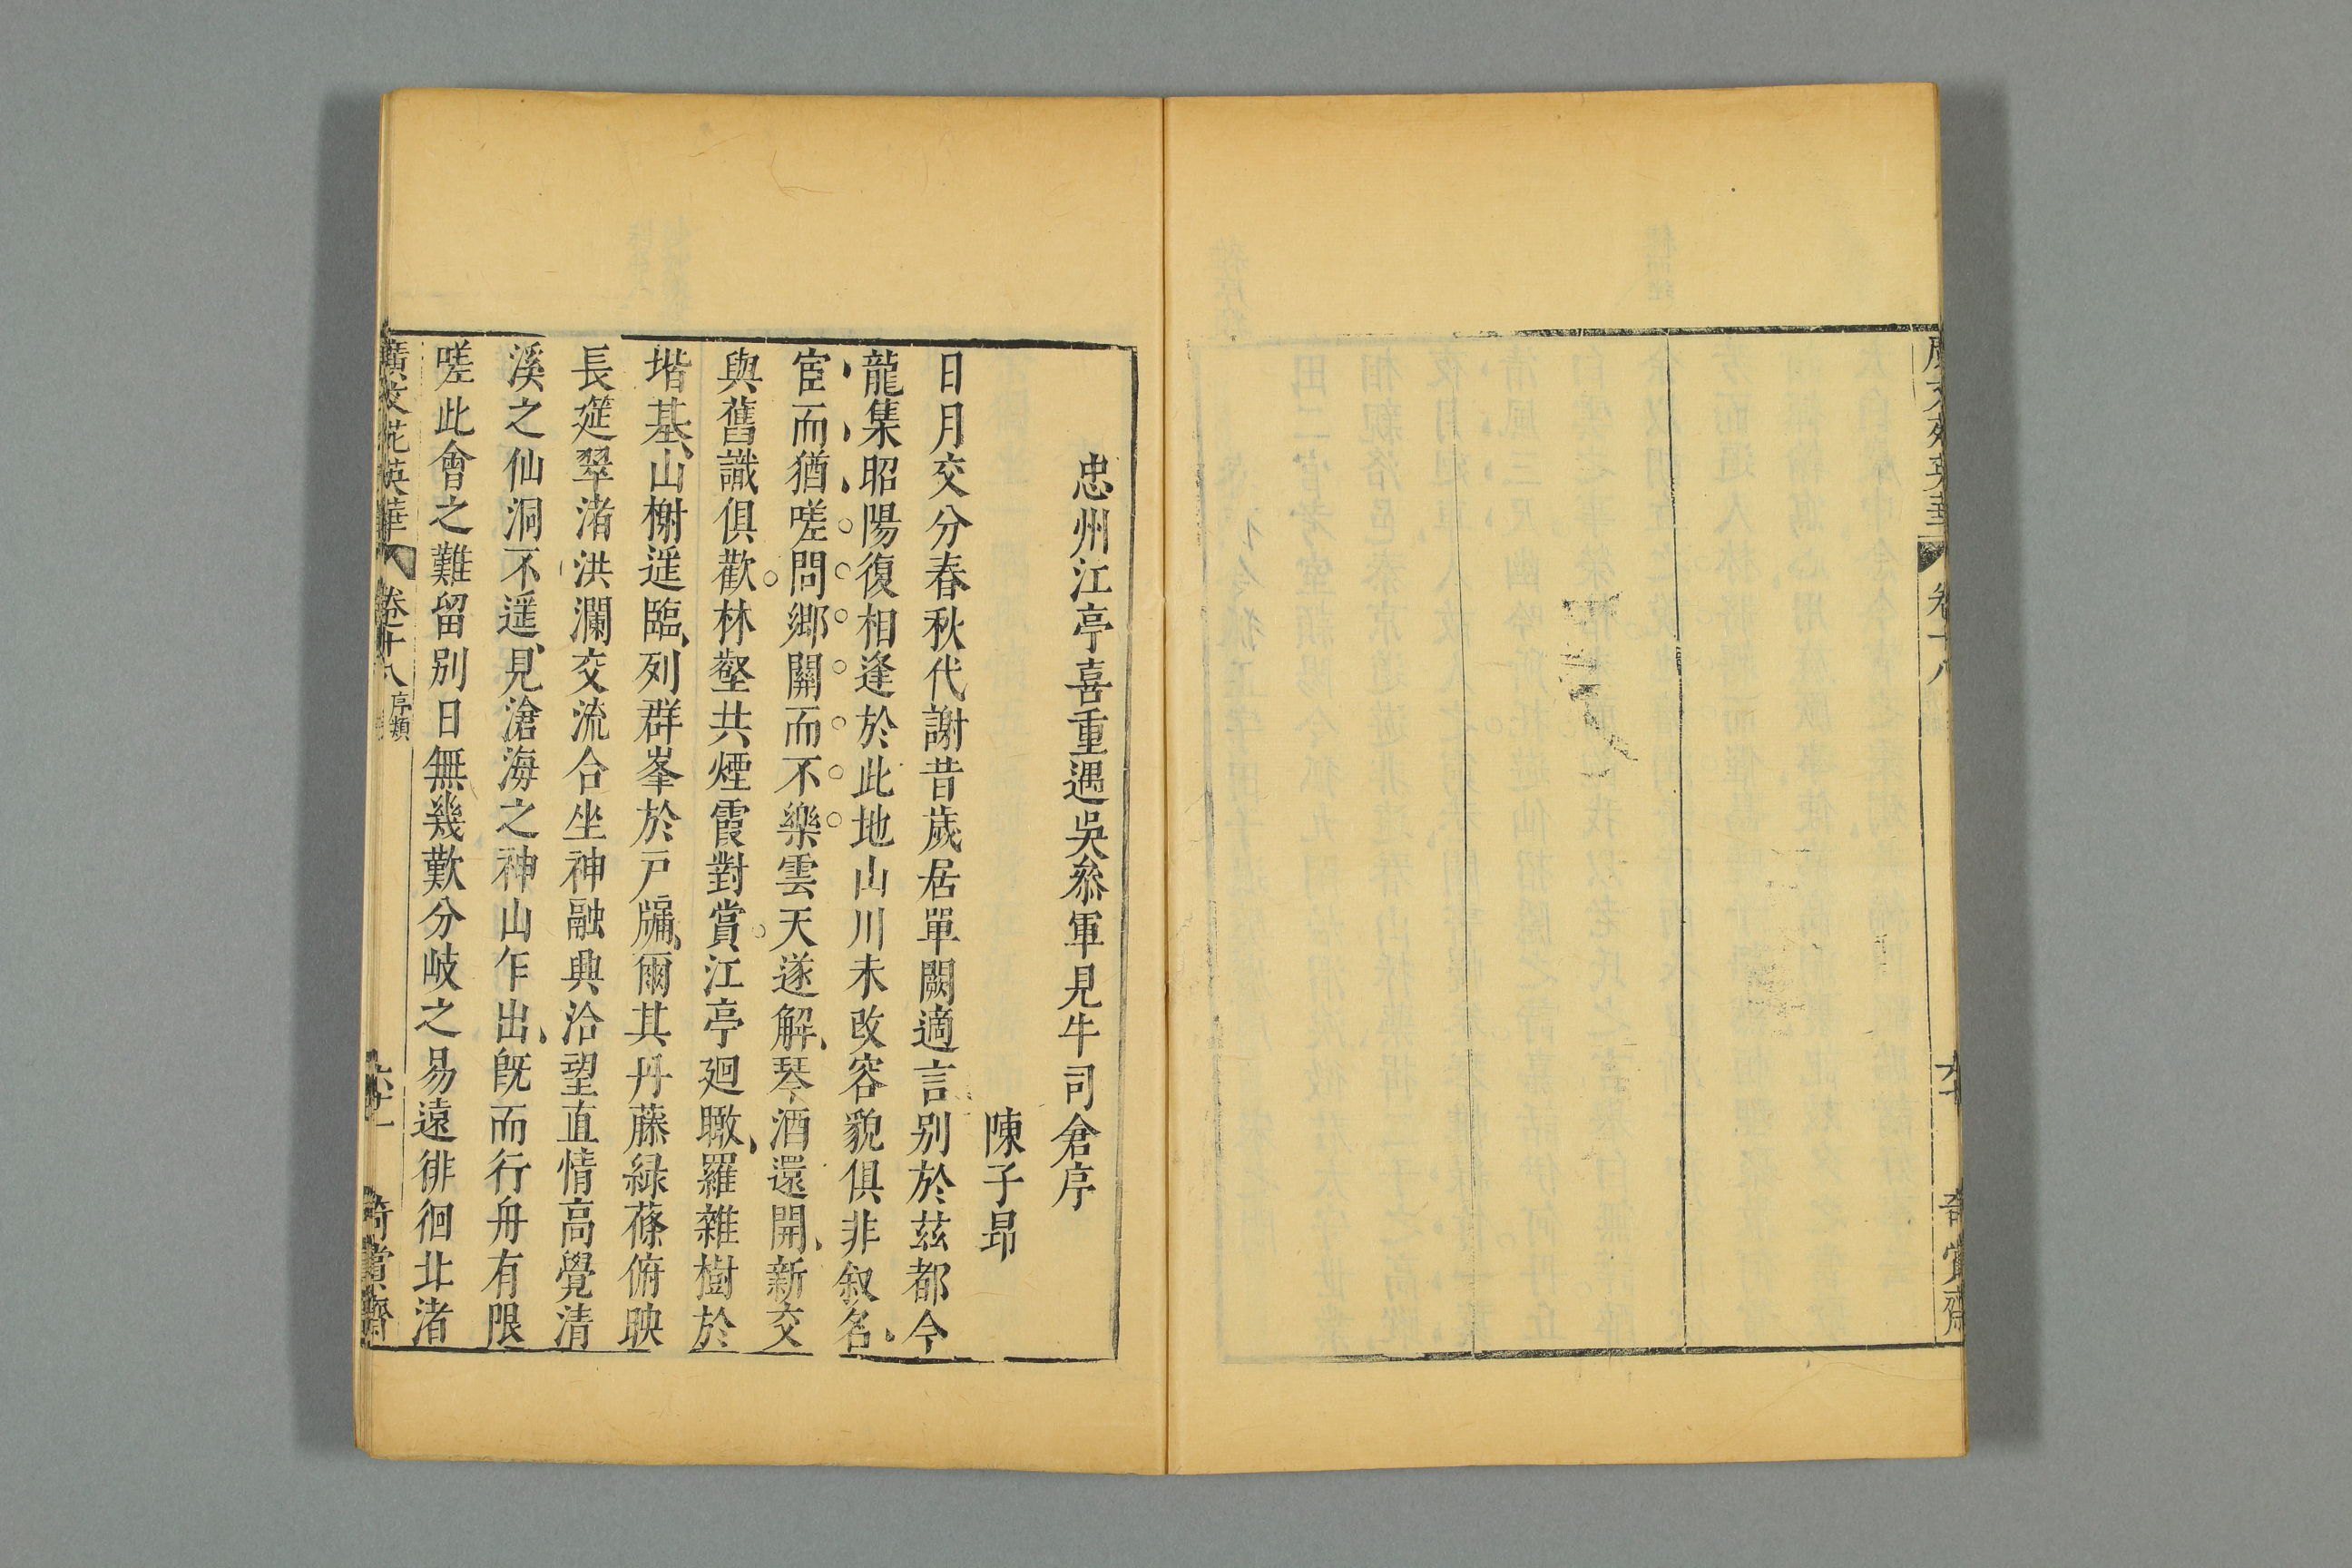 廣文苑英華
卷十八
奇賞齋
忠州江亭喜重遇吳叅軍見牛司倉序
陳子昻
日月交分春秋代謝昔歲居單闕適言别於茲都今
龍集昭陽復相逢於此地山川未改容貌俱非叙名
宦而猶嗟問鄉關而不樂雲天遂解琴酒還開新交
與舊識俱歡林壑共煙霞對賞江亭廻瞰羅雜樹於
堦基山榭遥臨列群峯於戸牖爾其丹藤緑蓧俯映
長筵翠渚洪瀾交流合坐神融興洽望直情高覺清
溪之仙洞不遥見滄海之神山乍出旣而行舟有限
嗟此會之難留别日無幾歎分岐之易遠徘徊北渚
廣文苑英華
卷十八
序類
六十一
奇賞齋